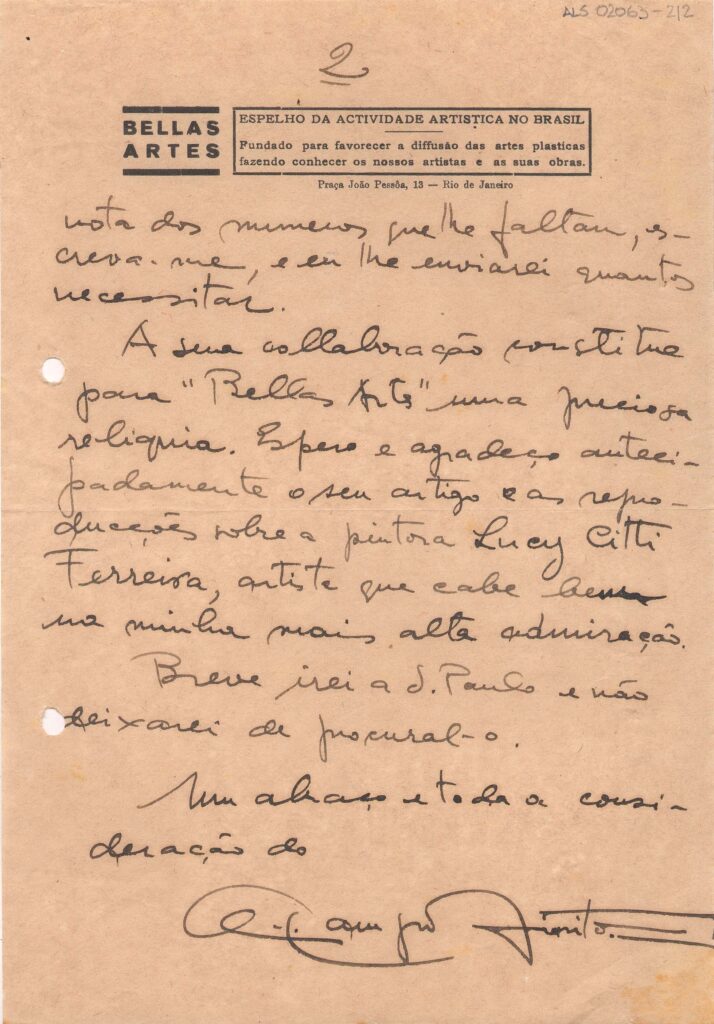 ALS 02063-212
2
BELLAS
ARTES
ESPELHO DA ACTIVIDADE ARTISTICA NO BRASIL
Fundado para favorecer a diffusão das artes plasticas
fazendo conhecer os nossos artistas e as suas obras.
Praça João Pessôa, 13 — Rio de Janeiro
nota dos numeros que lhe faltam, es-
creva-me, e eu lhe enviarei quantos
necessitar.
A sua collaboração constitue
para "Bellas Artes" uma preciosa
reliquia. Espero e agradeço anteci-
padamente o seu artigo e as repro-
ducções sobre a pintora Lucy Citti
Ferreira, artista que cabe bem
na minha mais alta admiração.
Breve irei a S. Paulo e não
deixarei de procural-o.
Um abraço e toda a consi-
deração do
Campo